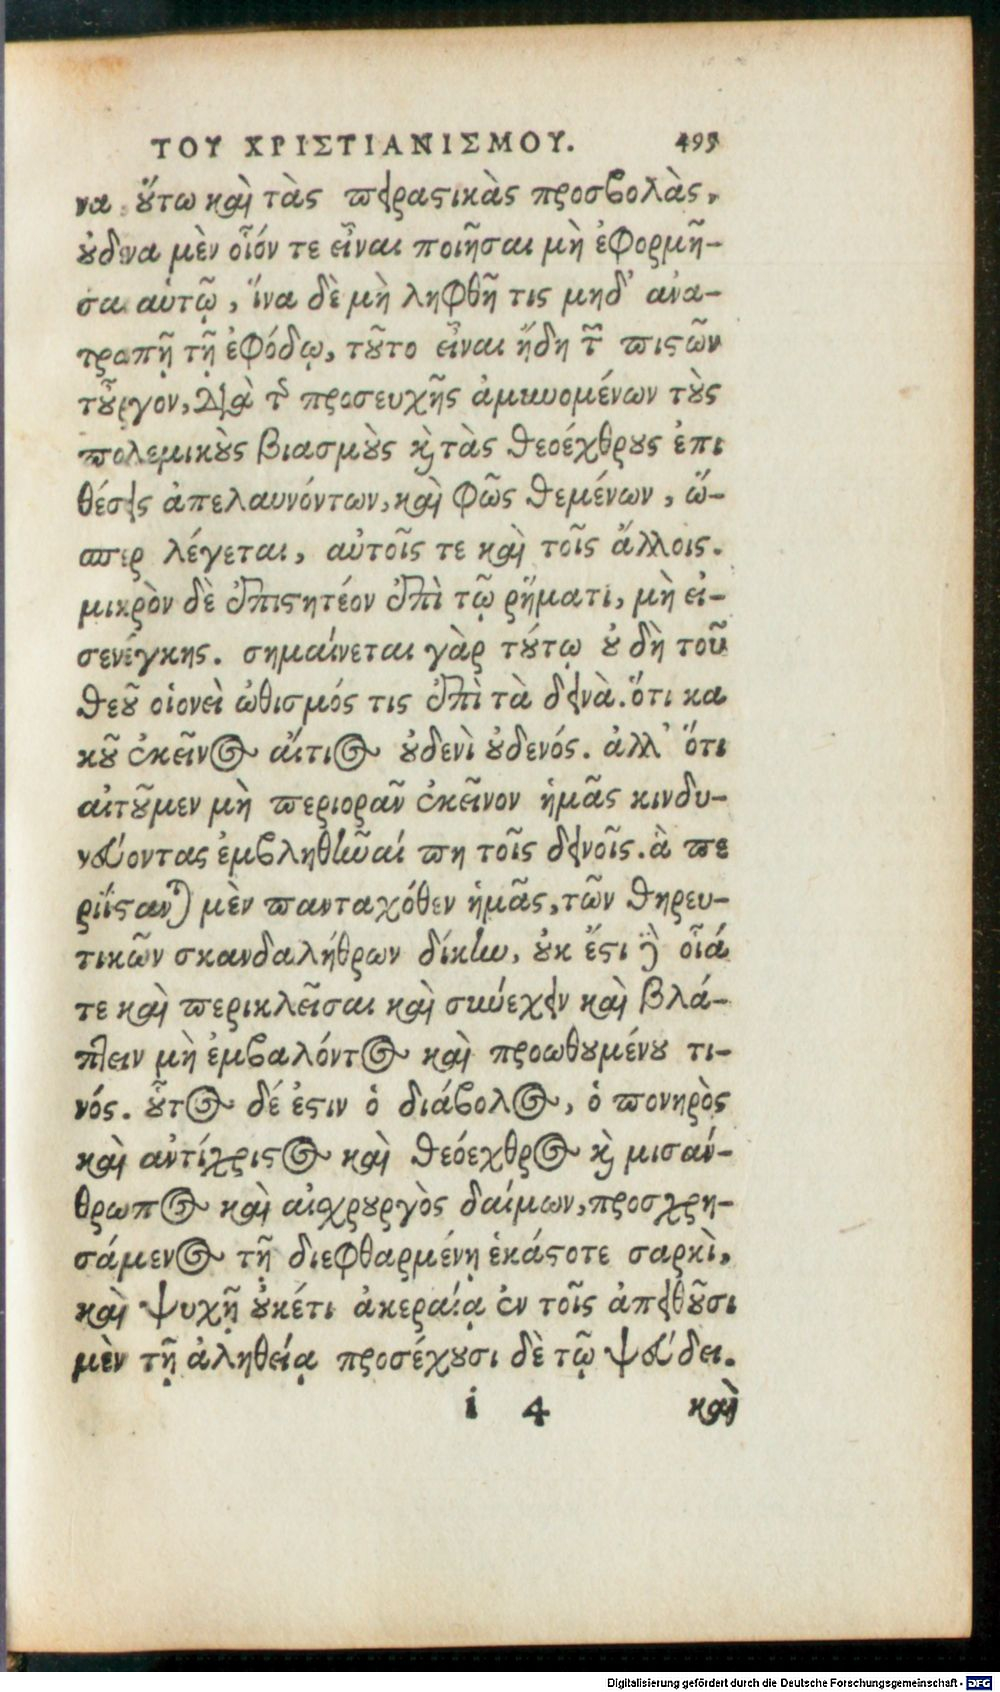 ΤΟΥ ΧΡΙΣΤΙΑΝΙΣΜΟΥ. 495
να οὕτω καὶ τὰς πειραστικὰς προσβολὰς,
οὐδενα μὲν οἷόν τε εἶναι ποιῆσαι μὴ ἐφορμῆ-
σαι αὐτῷ, ἵνα δὲ μὴ ληφθῆ τις μηδ' ἀνα-
τραπῇ τῇ ἐφόδῳ, τοῦτο εἶναι ἤδη τῶν πιστῶν
τοὖργον, διὰ τῆς προσευχῆς ἀμυνομένων τοὺς
πολεμικοὺς βιασμοὺς καὶ τὰς θεοέχθρους ἐπι
θέσεις ἀπελαυνόντων, καὶ φῶς θεμένων, ὥ-
σπερ λέγεται, αὐτοῖς τε καὶ τοῖς ἄλλοις.
μικρὸν δὲ ἐπιστητέον ἐπὶ τῷ ῥήματι, μὴ εἰ-
σενέγκης. σημαίνεται γὰρ τούτῳ οὐ δὴ τοῦ
θεοῦ οἱονεὶ ὠθισμός τις ἐπὶ τὰ δεινὰ. ὅτι κα
κοῦ ἐκεῖνος αἴτιος οὐδενὶ οὐδενός. ἀλλ' ὅτι
αἰτοῦμεν μὴ περιορᾶν ἐκεῖνον ἡμᾶς κινδυ-
νεύοντας ἐμβληθῆναί πη τοῖς δεινοῖς. ἃ πε
ριΐσταται μὲν πανταχόθεν ἡμᾶς, τῶν θηρευ-
τικῶν σκανδαλήθρων δίκην, οὐκ ἔστι δὲ οἷά
τε καὶ περικλεῖσαι καὶ συνέχειν καὶ βλά-
πτειν μὴ ἐμβαλόντος καὶ προωθουμένου τι-
νός. οὗτος δέ ἐστιν ὁ διάβολος, ὁ πονηρὸς
καὶ ἀντίχριστος καὶ θεόεχθρος καὶ μισάν-
θρωπος καὶ αἰσχρουργὸς δαίμων, προσχρη-
σάμενος τῇ διεφθαρμένῃ ἑκάστοτε σαρκὶ,
καὶ ψυχῇ οὐκέτι ἀκεραίᾳ ἐν τοῖς ἀπειθοῦσι
μὲν τῇ ἀληθείᾳ προσέχουσι δὲ τῷ ψεύδει.
i 4 καὶ
Digitalisierung gefördert durch die Deutsche Forschungsgemeinschaft - DFG